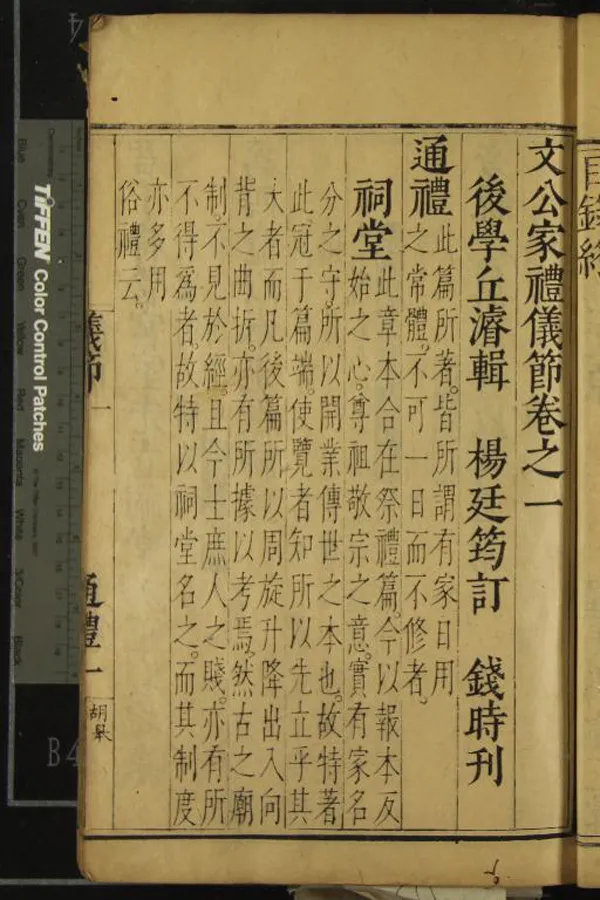 目錄終
文公家禮儀節卷之一
後學丘濬輯 楊廷筠訂 錢時刊
通禮 此篇所著。皆所謂有家日用
之常體。不可一日而不修者。
祠堂 此章本合在祭禮篇。今以報本反
始之心。尊祖敬宗之意。實有家名
分之守。所以開業傳世之本也。故特著
此冠于篇端。使覽者知所以先立乎其
大者。而凡後篇所以周旋升降出入向
背之曲折。亦有所據以考焉。然古之廟
制。不見於經。且今士庶人之賤。亦有所
不得為者。故特以祠堂名之。而其制度
亦多用
俗禮云。
儀節一 通禮一
TIFFEN Color Control Patches
Blue Cyan Green Yellow Red Magenta White 3/Color Black